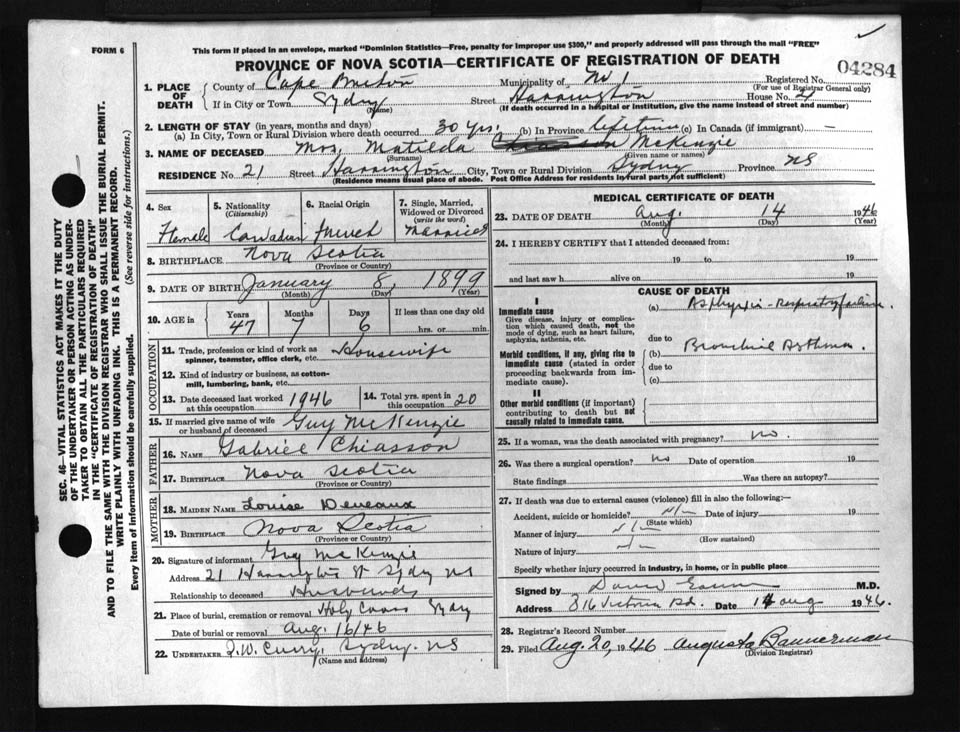 FORM 6
This form if placed in an envelope, marked "Dominion Statistics—Free, penalty for improper use $300," and properly addressed will pass through the mail "FREE"
PROVINCE OF NOVA SCOTIA—CERTIFICATE OF REGISTRATION OF DEATH
04284
1. PLACE OF DEATH
County of Cape Breton Municipality of No 1 Registered No.
(For use of Registrar General only)
If in City or Town Sydney Street Harrington House No. 21
(Name) (If death occurred in a hospital or institution, give the name instead of street and number)
2. LENGTH OF STAY (in years, months and days)
(a) In City, Town or Rural Division where death occurred 30 yrs. (b) In Province lifetime (c) In Canada (if immigrant) —
3. NAME OF DECEASED Mrs. Matilda Chiasson McKenzie
(Surname) (Given name or names)
RESIDENCE No. 21 Street Harrington City, Town or Rural Division Sydney Province NS
(Residence means usual place of abode. Post Office Address for residents in rural parts not sufficient)
4. Sex Female
5. Nationality (Citizenship) Canadian
6. Racial Origin French
7. Single, Married, Widowed or Divorced (write the word) Married
8. BIRTHPLACE Nova Scotia
(Province or Country)
9. DATE OF BIRTH January 8, 1899
(Month) (Day) (Year)
10. AGE in Years 47 Months 7 Days 6 If less than one day old hrs. or min.
OCCUPATION
11. Trade, profession or kind of work as spinner, teamster, office clerk, etc. Housewife
12. Kind of industry or business, as cotton-mill, lumbering, bank, etc.
13. Date deceased last worked at this occupation 1946
14. Total yrs. spent in this occupation 20
15. If married give name of wife or husband of deceased Guy McKenzie
FATHER
16. NAME Gabriel Chiasson
17. BIRTHPLACE Nova Scotia
(Province or Country)
MOTHER
18. MAIDEN NAME Louise Deveaux
19. BIRTHPLACE Nova Scotia
(Province or Country)
20. Signature of informant Guy McKenzie
Address 21 Harrington St Sydney NS
Relationship to deceased Husband
21. Place of burial, cremation or removal Holy Cross Sydney
Date of burial or removal Aug. 16/46
22. UNDERTAKER Curry, Sydney. NS
(Name and address)
MEDICAL CERTIFICATE OF DEATH
23. DATE OF DEATH Aug. 14 1946
(Month) (Day) (Year)
24. I HEREBY CERTIFY that I attended deceased from:
19 to 19
and last saw h alive on 19
CAUSE OF DEATH
I
Immediate cause
Give disease, injury or complication which caused death, not the mode of dying, such as heart failure, asphyxia, asthenia, etc.
(a) Asphyxia - Respiratory failure.
due to
Morbid conditions, if any, giving rise to immediate cause (stated in order proceeding backwards from immediate cause).
(b) Bronchial Asthma.
due to
(c)
II
Other morbid conditions (if important) contributing to death but not causally related to immediate cause.
25. If a woman, was the death associated with pregnancy? no.
26. Was there a surgical operation? no Date of operation 19
State findings Was there an autopsy?
27. If death was due to external causes (violence) fill in also the following:—
Accident, suicide or homicide? n/- Date of injury 19
(State which)
Manner of injury n/-
(How sustained)
Nature of injury n/-
Specify whether injury occurred in industry, in home, or in public place
Signed by M.D.
Address 816 Victoria Rd. Date 14 Aug 1946.
28. Registrar's Record Number
29. Filed Aug. 20, 1946 Augusta Bannerman
(Division Registrar)
SEC. 46—VITAL STATISTICS ACT MAKES IT THE DUTY
OF THE UNDERTAKER OR PERSON ACTING AS UNDER-
TAKER TO OBTAIN ALL THE PARTICULARS REQUIRED
IN THE "CERTIFICATE OF REGISTRATION OF DEATH"
AND TO FILE THE SAME WITH THE DIVISION REGISTRAR WHO SHALL ISSUE THE BURIAL PERMIT.
WRITE PLAINLY WITH UNFADING INK. THIS IS A PERMANENT RECORD.
Every item of information should be carefully supplied. (See reverse side for instructions.)